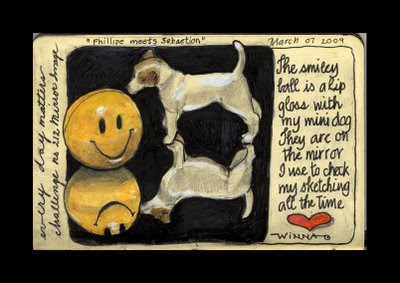 "Phillipe meets Sebastion"
March 07 2009
every day matters
challenge no 212 Mirror Image
The smiley
ball is a lip
gloss with
my mini dog
They are on
the mirror
I use to check
my sketching
all the time
WINNA